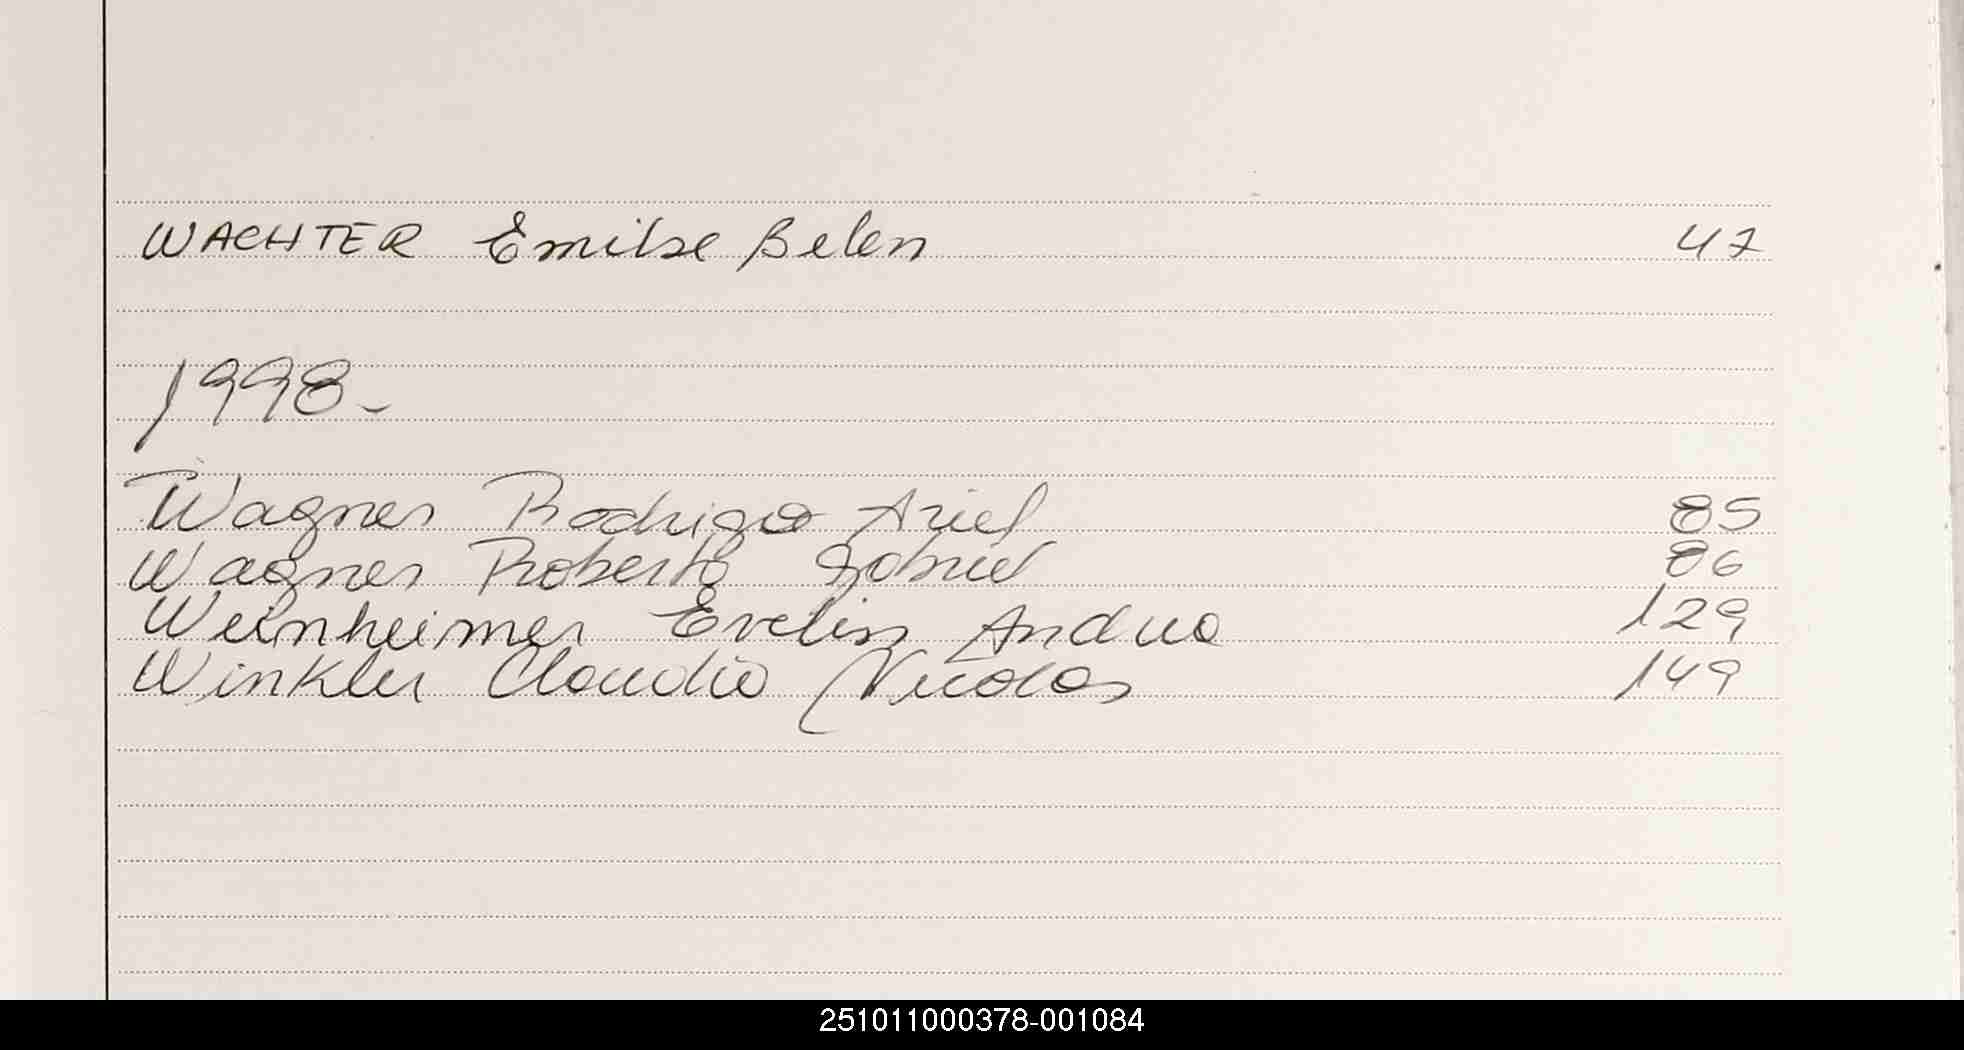 WACHTER Emilse Belen 47
1998-
Wagner Rodrigo Ariel 85
Wagner Roberto Gabriel 86
Weinheimer Evelin Andrea 129
Winkler Claudio Nicolas 149
251011000378-001084